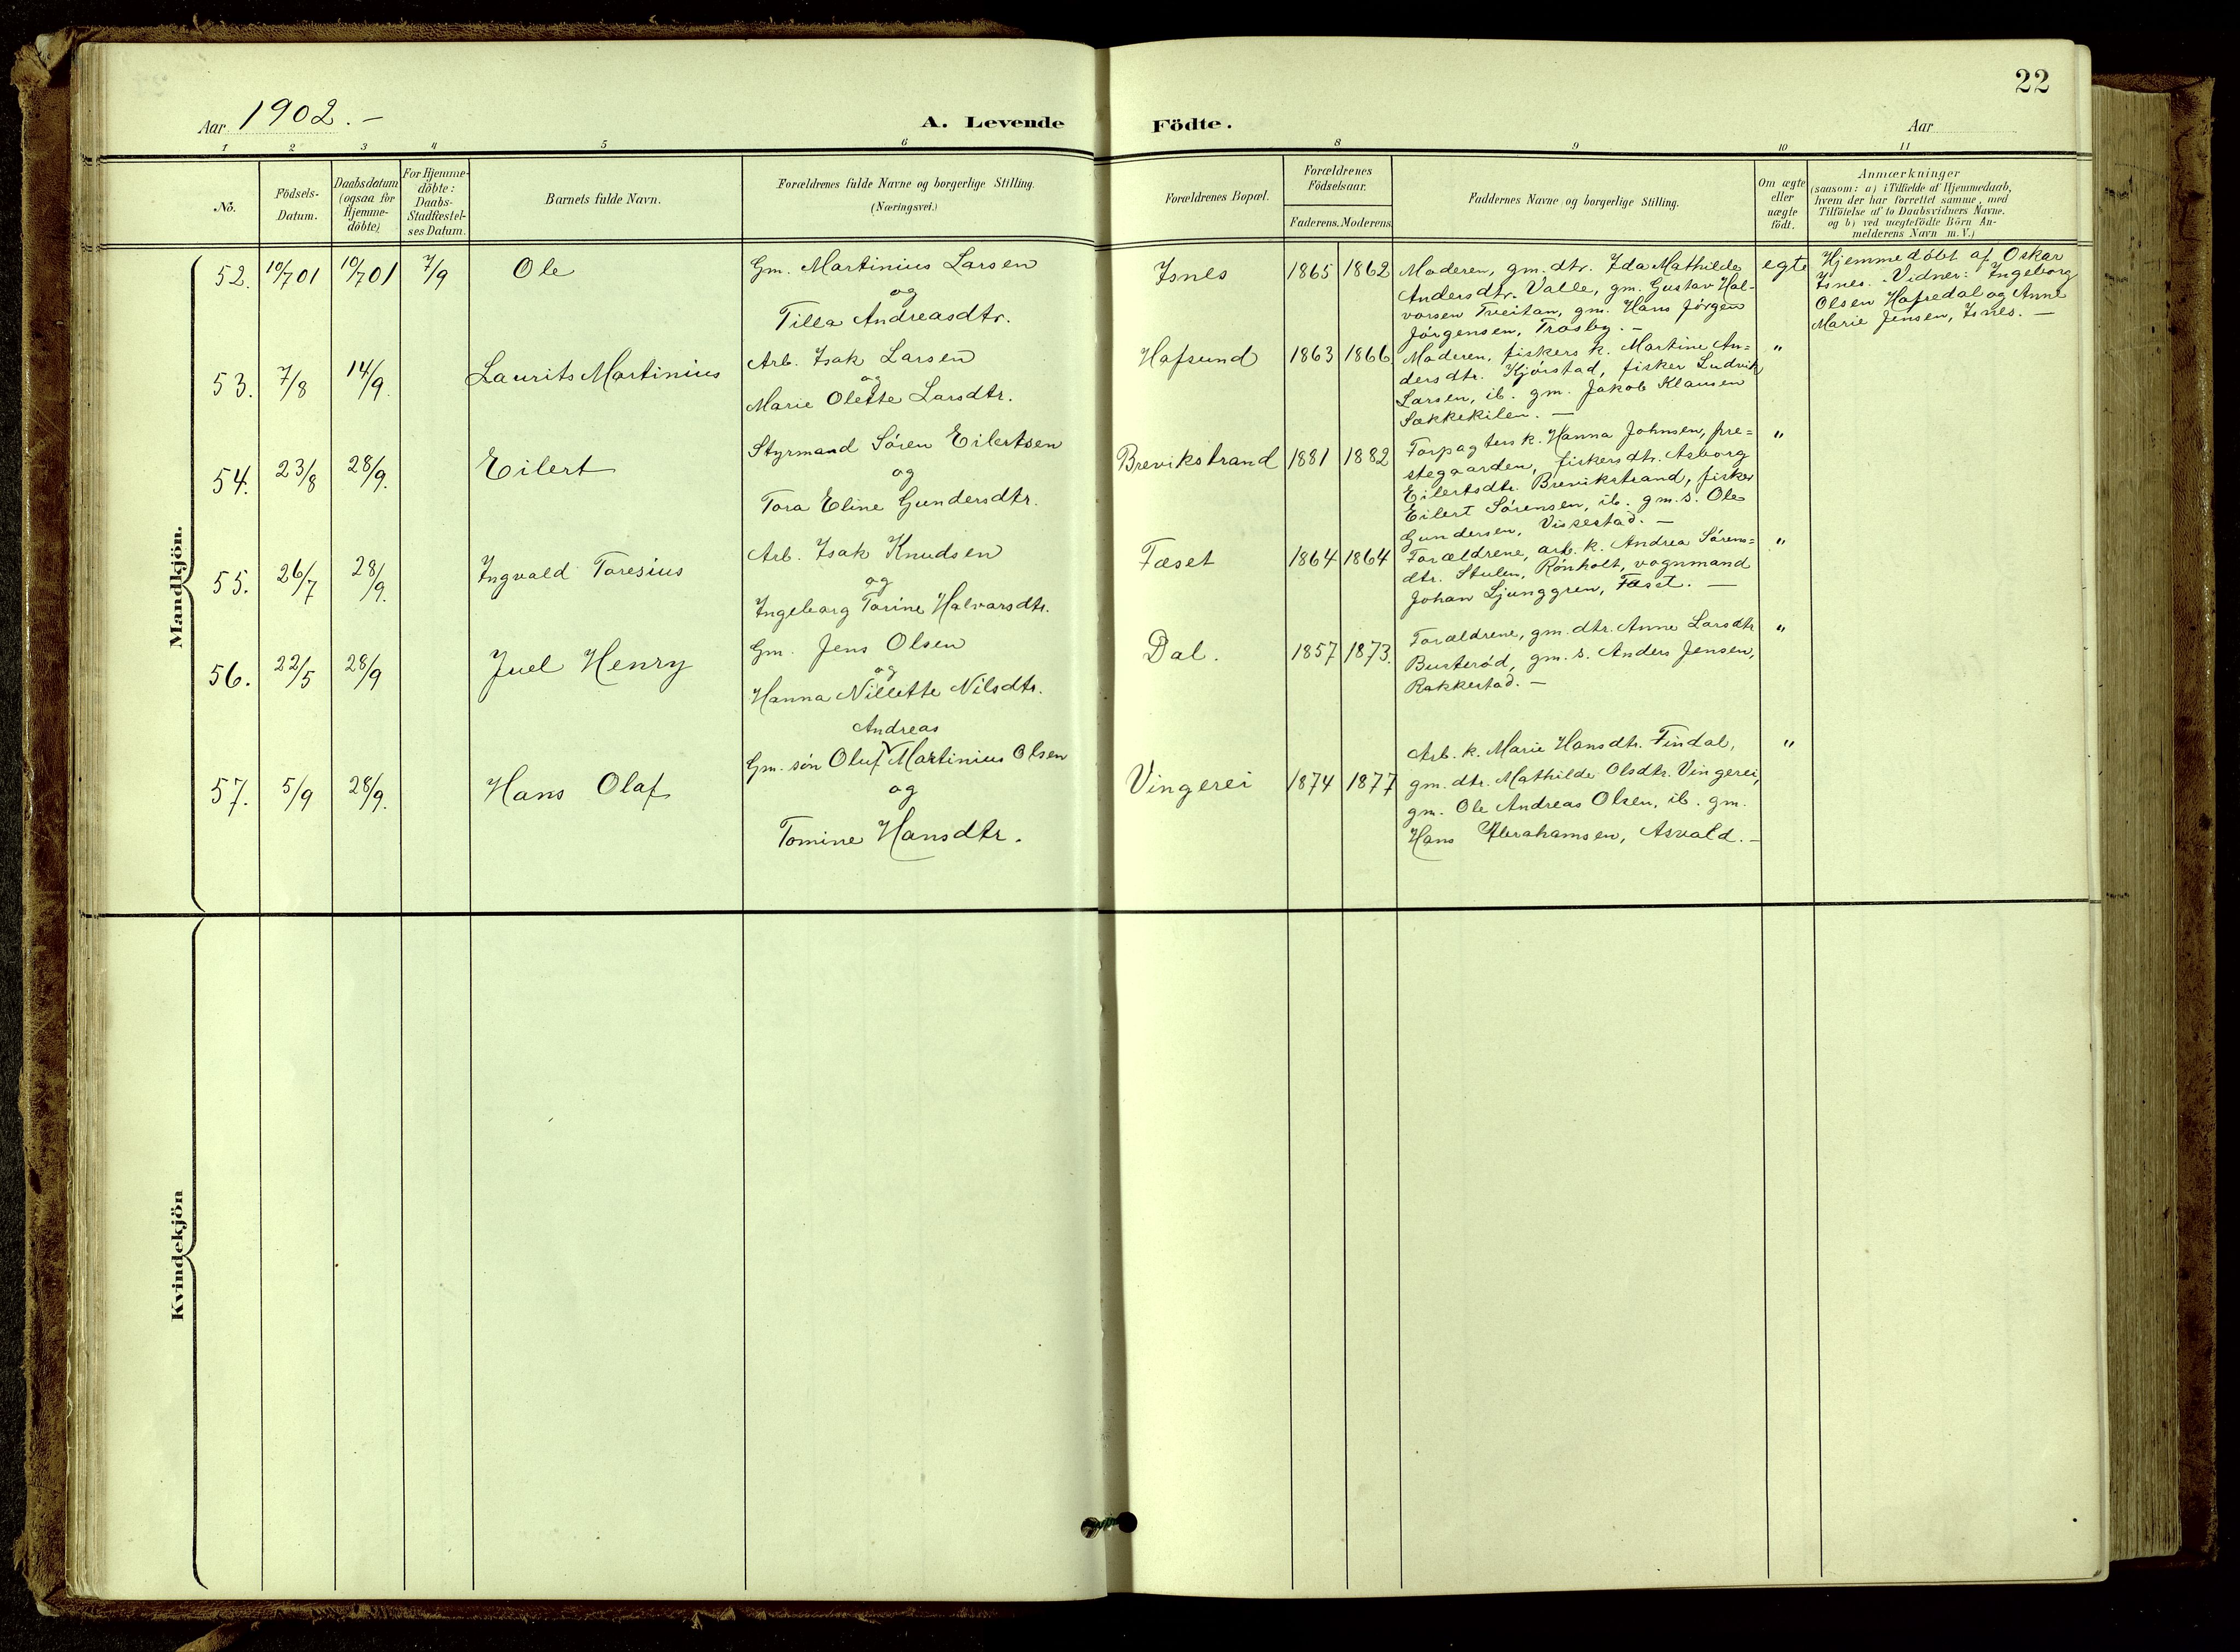 22
Aar 1902.-
A. Levende
Födte.
Aar
1 2 3 4 5 6 8 9 10 11
No.
Födsels-
Datum.
Daabsdatum
(ogsaa for
Hjemme-
döbte)
For Hjemme-
döbte:
Daabs-
Stadfæstel-
ses Datum.
Barnets fulde Navn.
Forældrenes fulde Navne og borgerlige Stilling.
(Næringsvei.)
Forældrenes Bopæl.
Forældrenes
Födselsaar.
Faderens. Moderens.
Faddernes Navne og borgerlige Stilling.
Om ægte
eller
uægte
födt.
Anmærkninger
(saasom: a) i Tilfælde af Hjemmedaab,
hvem der har forrettet samme, med
Tilföielse af to Daabsvidners Navne.
og b) ved uægtefödte Börn An-
melderens Navn m. V.)
Mandkjön.
52. 10/7 01 10/7 01 7/9 Ole
Gm. Martinius Larsen
og
Tilla Andreasdtr.
Isnes 1865 1862
Moderen, gm. dtr. Ida Mathilde
Andersdtr. Valle, gm. Gustav Hal-
vorsen Treitan, gm. Hans Jörgen
Jörgensen, Trosby. -
egte
Hjemmedöbt af Oskar
Isnes. - Vidner: Ingeborg
Olsen Hafredal og Anne
Marie Jensen, Isnes. -
53. 7/8 14/9. Laurits Martinius
Arb. Isak Larsen
og
Marie Olette Larsdtr.
Hafsund 1863 1866
Moderen, fiskers k. Martine An=
dersdtr. Kjörstad, fisker Ludvik
Larsen, ib. gm. Jakob Klausen
Sækkekilen. -
"
54. 23/8 28/9. Eilert
Styrmand Sören Eilertsen
og
Tora Eline Gundersdtr.
Brevikstrand 1881 1882
Forpagters k. Hanna Johnsen, pre=
stegaarden, fiskers dtr. Asborg
Eilertsdtr. Brevikstrand, fisker
Eilert Sörensen, ib. gm. s. Ole
Gundersen, Vissestad. -
"
55. 26/7 28/9. Ingvald Toresius
Arb. Isak Knudsen
og
Ingeborg Torine Halvorsdtr.
Fæset 1864 1864
Forældrene, arb. k. Andrea Sörens=
dtr. Stulen, Rönholt, vognmand
Johan Ljunggren, Fæset. -
"
56. 22/5 28/9 Juel Henry
Gm. Jens Olsen
og
Hanna Nillette Nilsdtr.
Dal. 1857 1873.
Forældrene, gm. dtr. Anne Larsdtr
Busteröd, gm. s. Anders Jensen,
Rakkestad. -
"
57. 5/9 28/9. Hans Olaf
Andreas
Gm. sön Oluf Martinius Olsen
og
Tomine Hansdtr.
Vingerei 1874 1877
Arb. k. Marie Hansdtr. Findal,
gm. dtr. Mathilde Olsdtr. Vingerei,
gm. Ole Andreas Olsen, ib. gm.
Hans Abrahamsen, Asvald. -
"
Kvindekjön